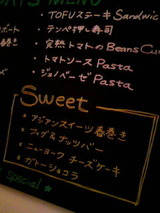 MENU
・TOFUステーキSandwic
・テンペ押し寿司
・完熟トマトのBeans Cur
・トマトソースPasta
・ジェノベーゼPasta
Sweet
★アジアンスイーツ春巻き
★フィグ&ナッツバー
★ニューヨークチーズケーキ
★ガトーショコラ
special ★